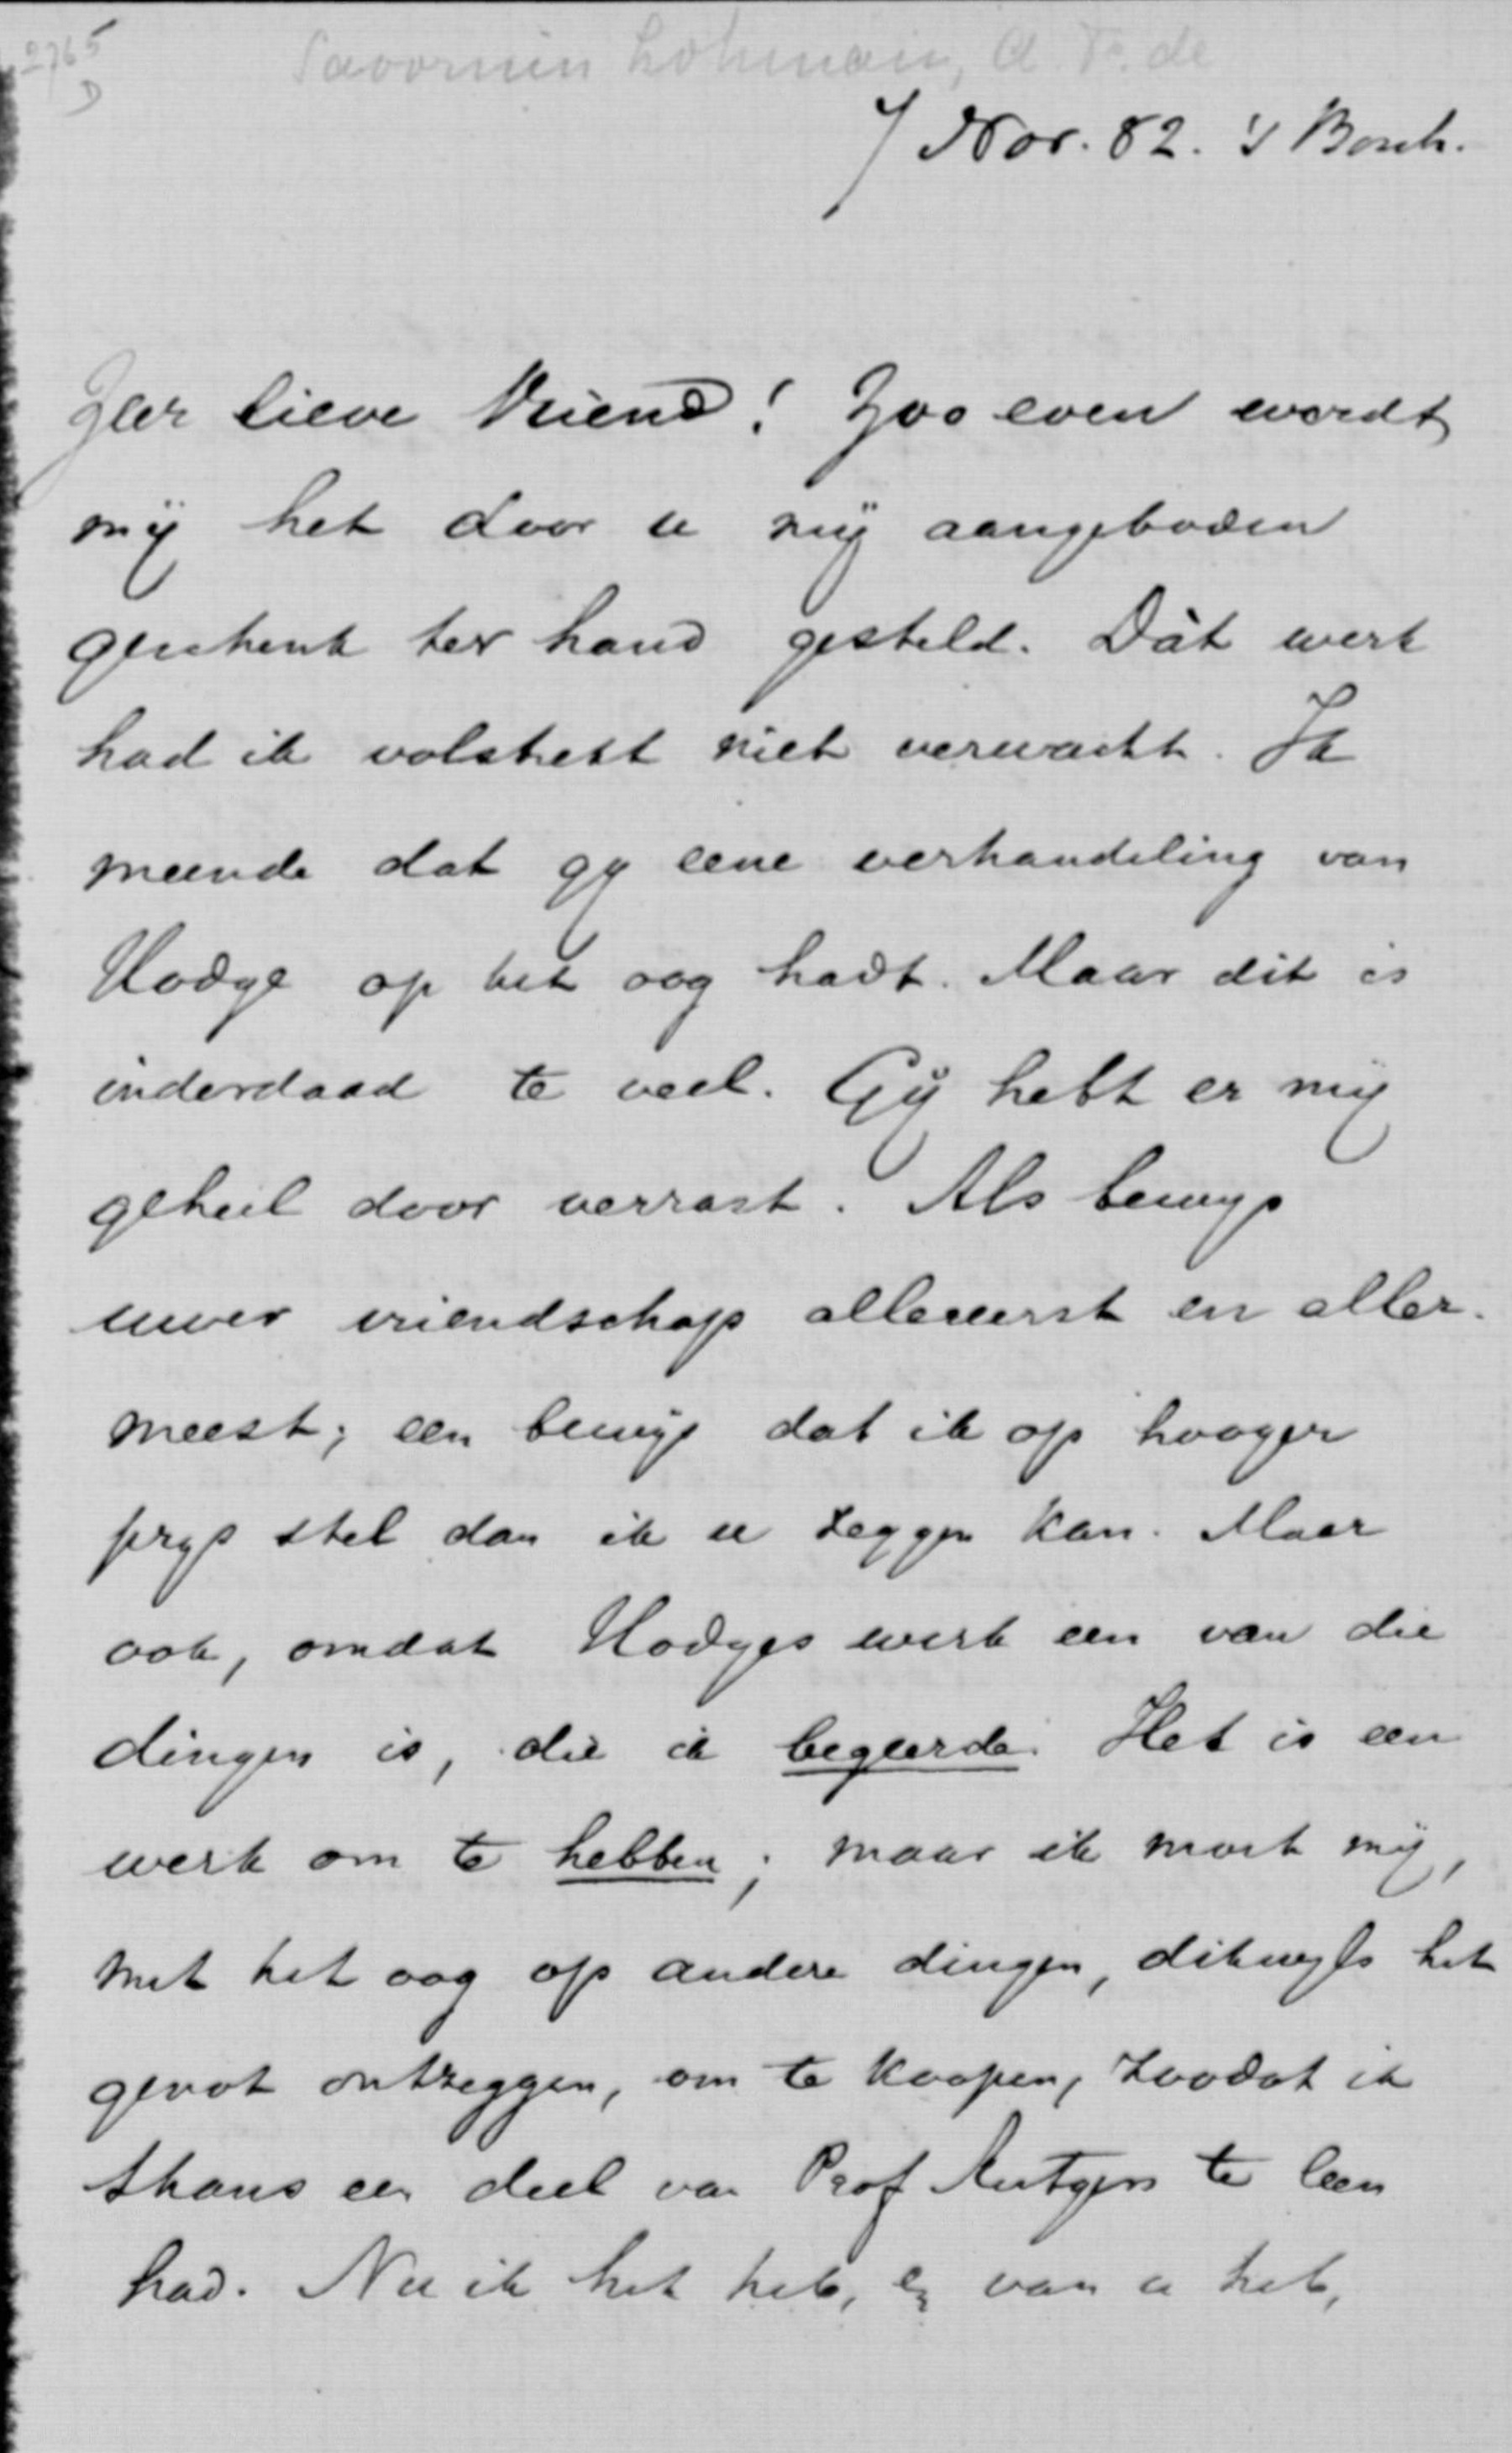 2765
D
Savornin Lohman, A. F. de
7 Nov. 82. 's Bosch.
Zeer lieve Vriend! Zoo even wordt
mij het door u mij aangeboden
geschenk ter hand gesteld. Dàt werk
had ik volstrekt niet verwacht. Ik
meende dat gij eene verhandeling van
Hodge op het oog hadt. Maar dit is
inderdaad te veel. Gij hebt er mij
geheel door verrast. Als bewijs
uwer vriendschap allereerst en aller-
meest; een bewijs dat ik op hooger
prijs stel dan ik u zeggen kan. Maar
ook, omdat Hodges werk een van die
dingen is, die ik begeerde. Het is een
werk om te hebben; maar ik moest mij,
met het oog op andere dingen, dikwijls het
genot ontzeggen, om te koopen, zoodat ik
thans een deel van Prof Rutgers te leen
had. Nu ik het heb, en van u heb,